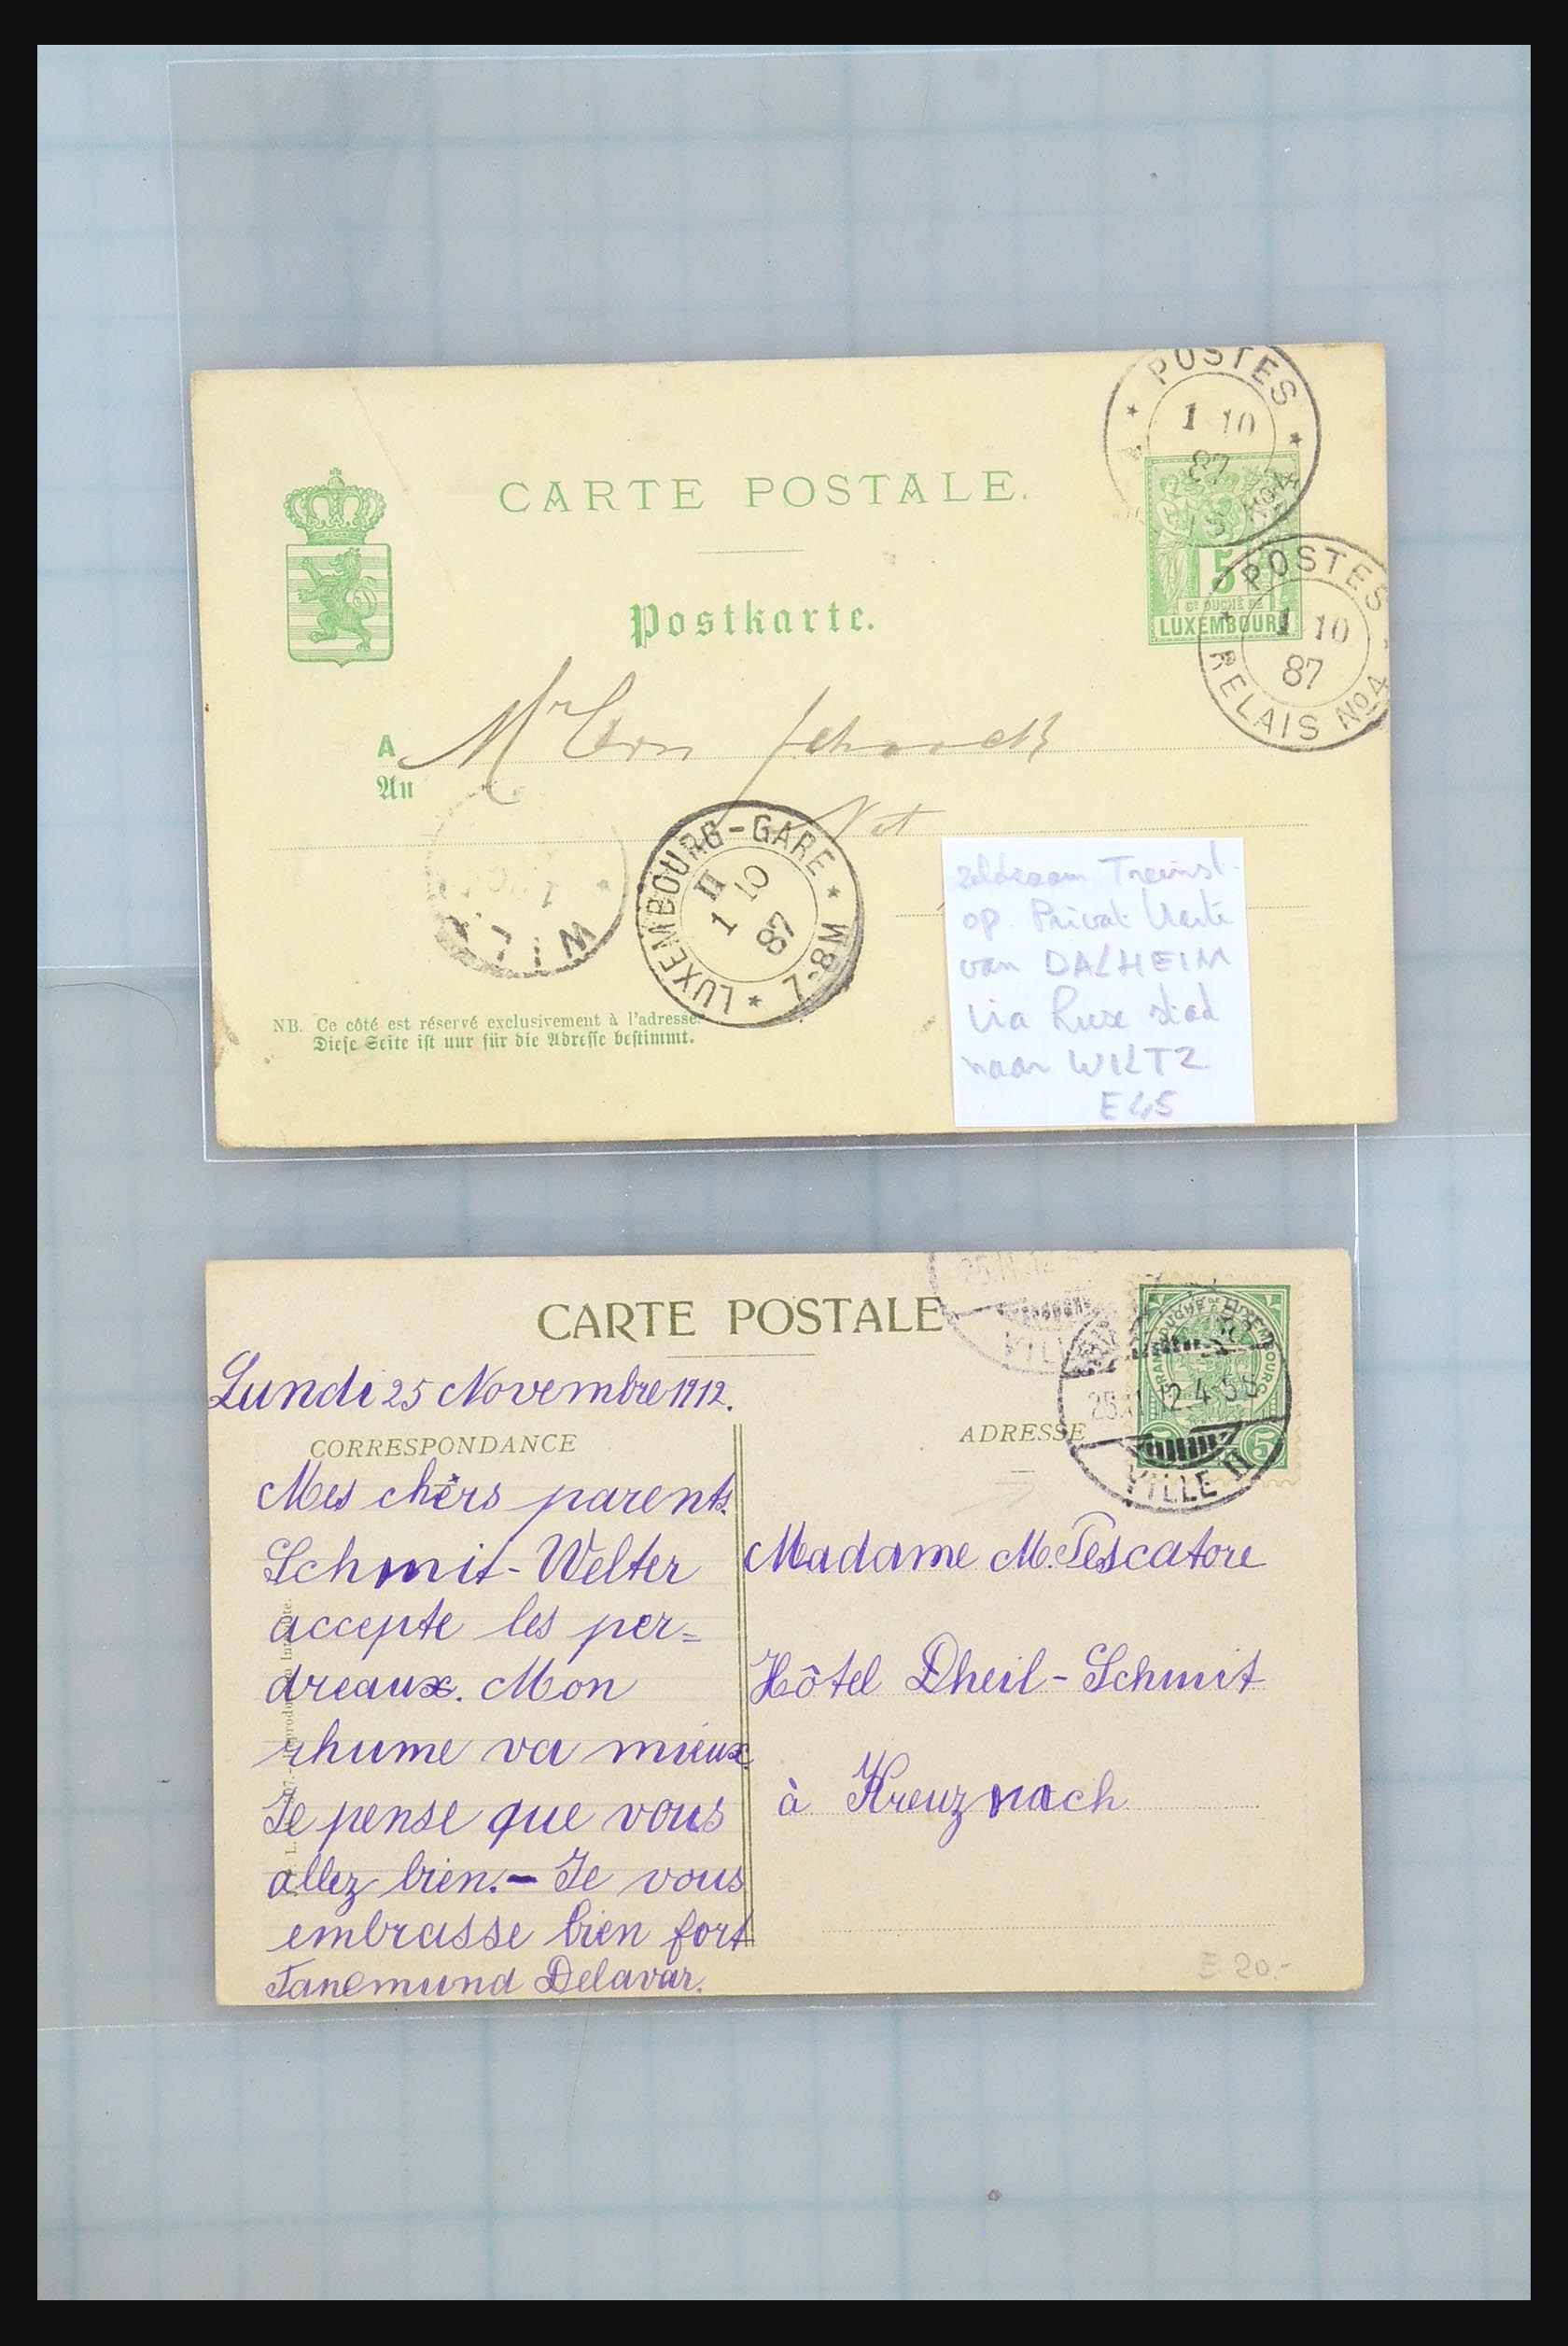 POSTES
1 10
87
No 4
CARTE POSTALE.
5
Gd DUCHÉ DE
LUXEMBOURG
POSTES
1 10
87
RELAIS No 4
Postkarte.
A Mr Léon Schaack
An
Not
WIL
LUXEMBOURG-GARE * M8-7 *
II
1 10
87
zeldzaam Treinst.
op Privat Karte
van DALHEIM
via Luxe stad
naar WILTZ
E 45
NB. Ce côté est réservé exclusivement à l'adresse.
Diese Seite ist nur für die Adresse bestimmt.
CARTE POSTALE
25.11.12
VILLE
GRAND DUCHÉ DE LUXEMBOURG
5
25.11.12 4-5 S
VILLE II
Lundi 25 Novembre 1912.
CORRESPONDANCE
ADRESSE
Mes chèrs parents.
Schmit-Welter
accepte les per=
dreaux. Mon
rhume va mieux.
Je pense que vous
allez bien.- Je vous
embrasse bien fort
Tanemund Delavar.
Madame M. Pescatore
Hôtel Dheil-Schmit
à Kreuznach
E 20.-